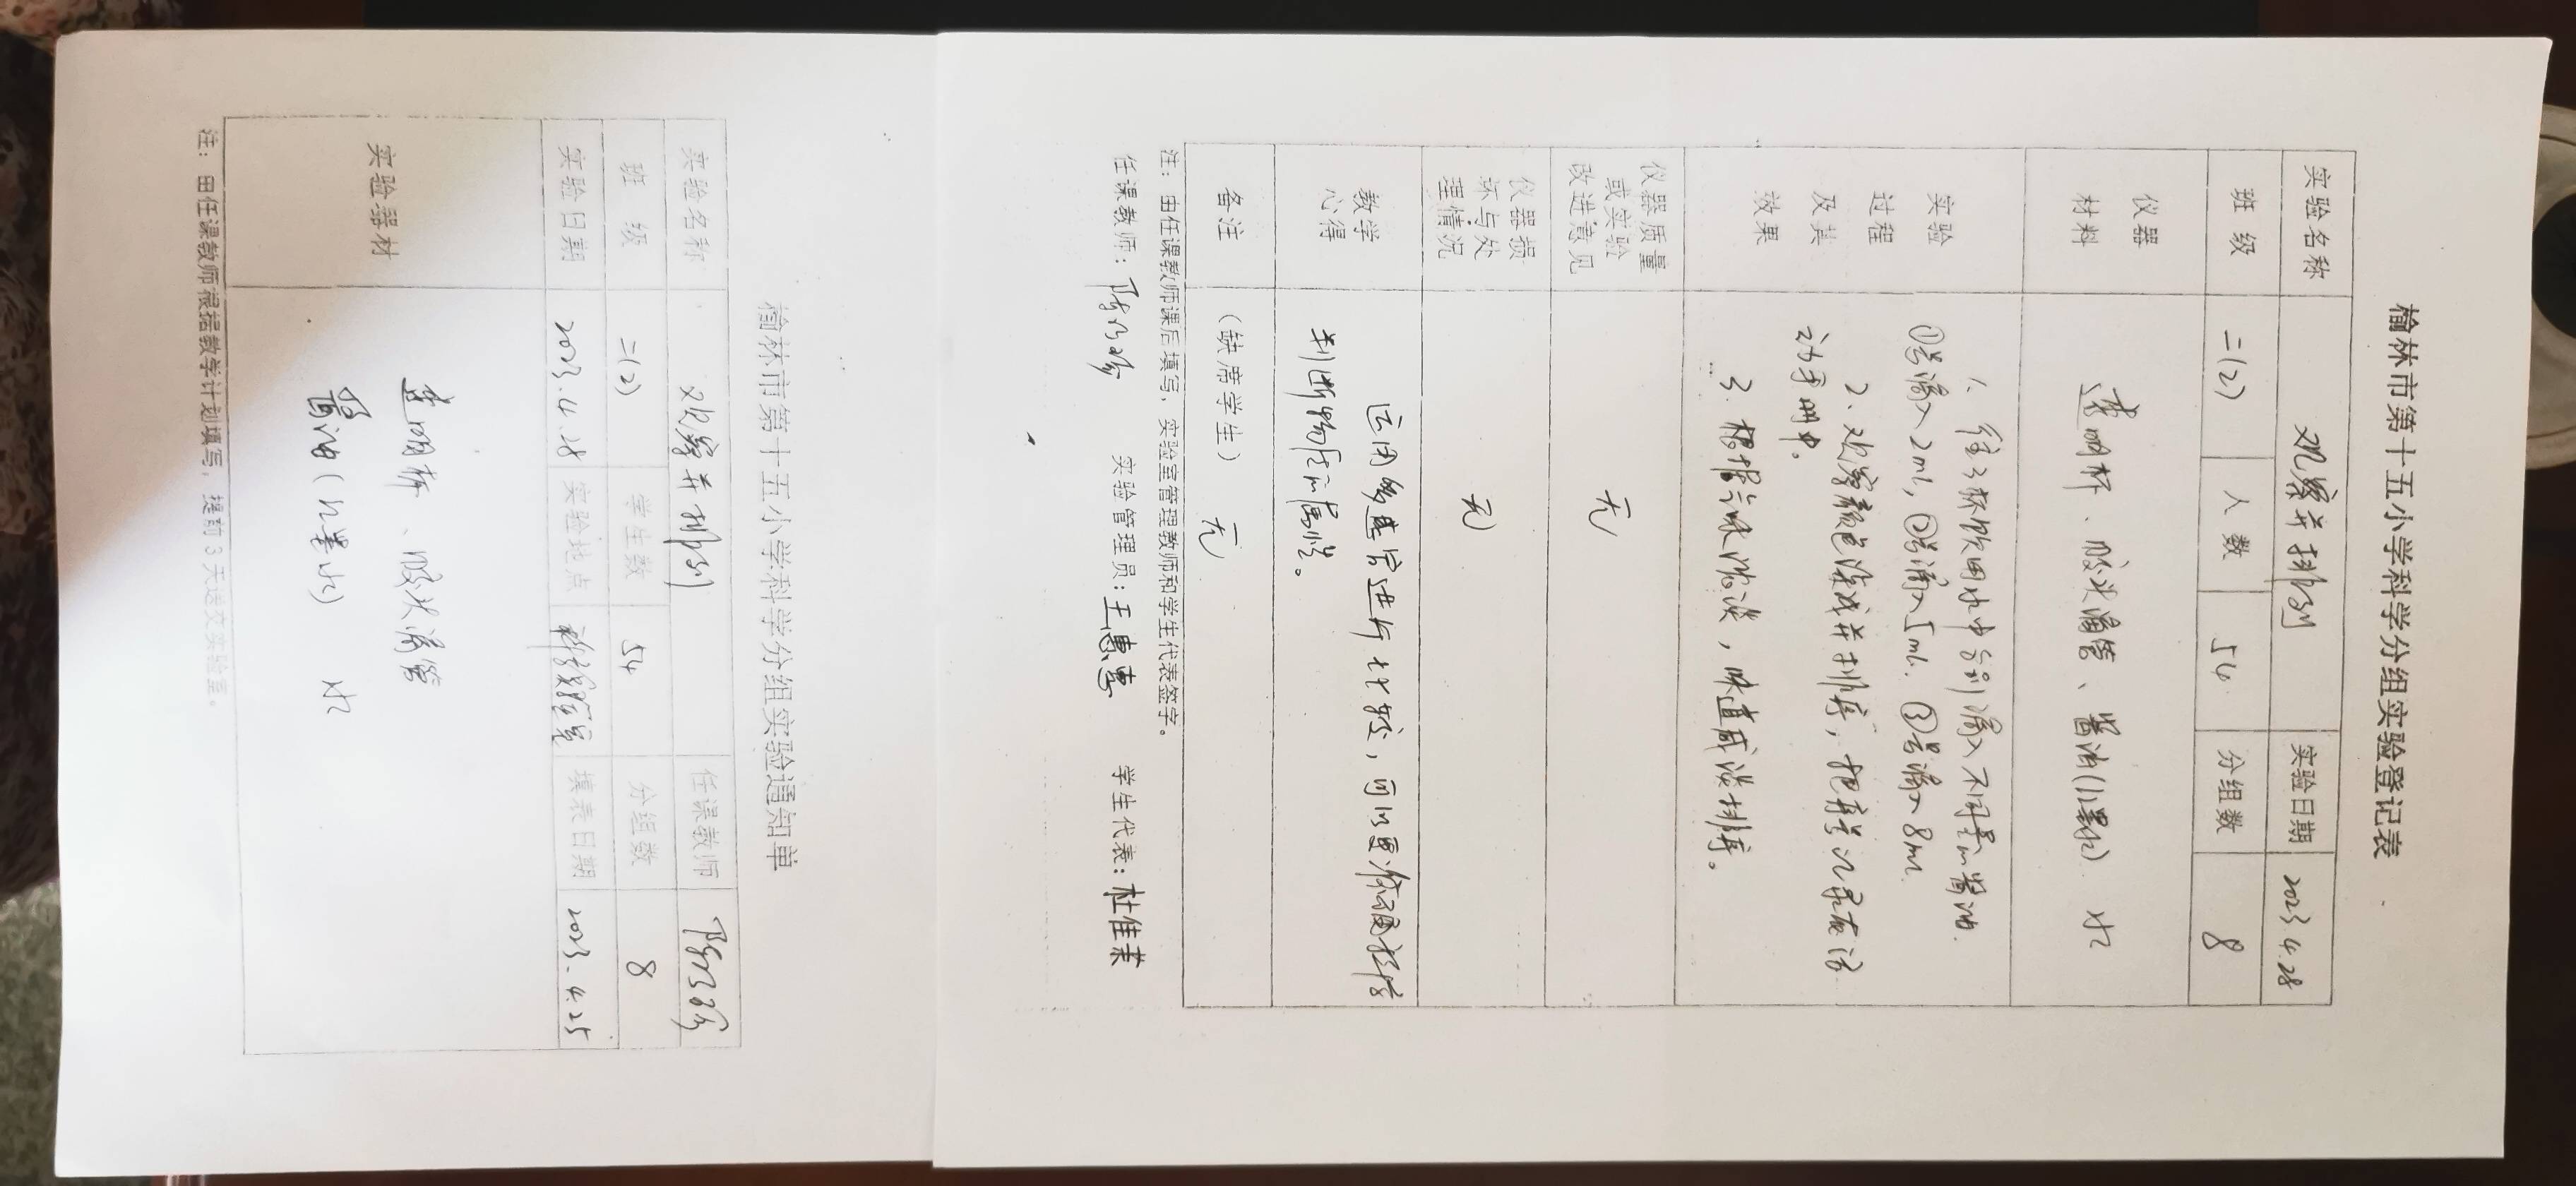 榆林市第十五小学科学分组实验登记表
实验名称 观察并排列 实验日期 2023.4.28
班级 二(2) 人数 54 分组数 8
仪器材料 透明杯、胶头滴管、酱油(红墨水) 水
实验过程及其效果
1、往3杯饮用水中分别滴入不同量的酱油.
①号滴入2ml, ②号滴入5ml. ③号滴入8ml
2、观察颜色深浅并排序,把序号记录在活
动手册中。
3、根据气味浓淡,味道咸淡排序。
仪器质量或实验改进意见 无
仪器损坏与处理情况 无
教学心得
运用多感官进行比较,可以更准确地
判断物质的属性。
备注 (缺席学生) 无
注:由任课教师课后填写,实验室管理教师和学生代表签字。
任课教师: 实验管理员:王惠惠 学生代表:杜佳荣
榆林市第十五小学科学分组实验通知单
实验名称 观察并排列 任课教师
班级 二(2) 学生数 54 分组数 8
实验日期 2023.4.28 实验地点 科学实验室 填表日期 2023.4.25
实验器材
透明杯、胶头滴管
酱油(红墨水) 水
注:由任课教师根据教学计划填写,提前3天送交实验室。